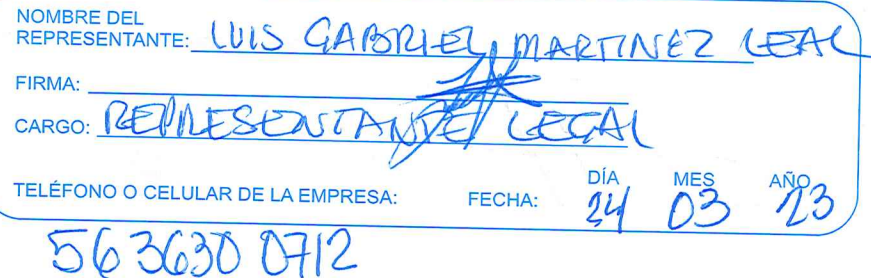 NOMBRE DEL
REPRESENTANTE: LUIS GABRIEL MARTINEZ LEAL
FIRMA:
CARGO: REPRESENTANTE LEGAL
TELÉFONO O CELULAR DE LA EMPRESA: FECHA: DÍA 24 MES 03 AÑO 23
56 3630 0712